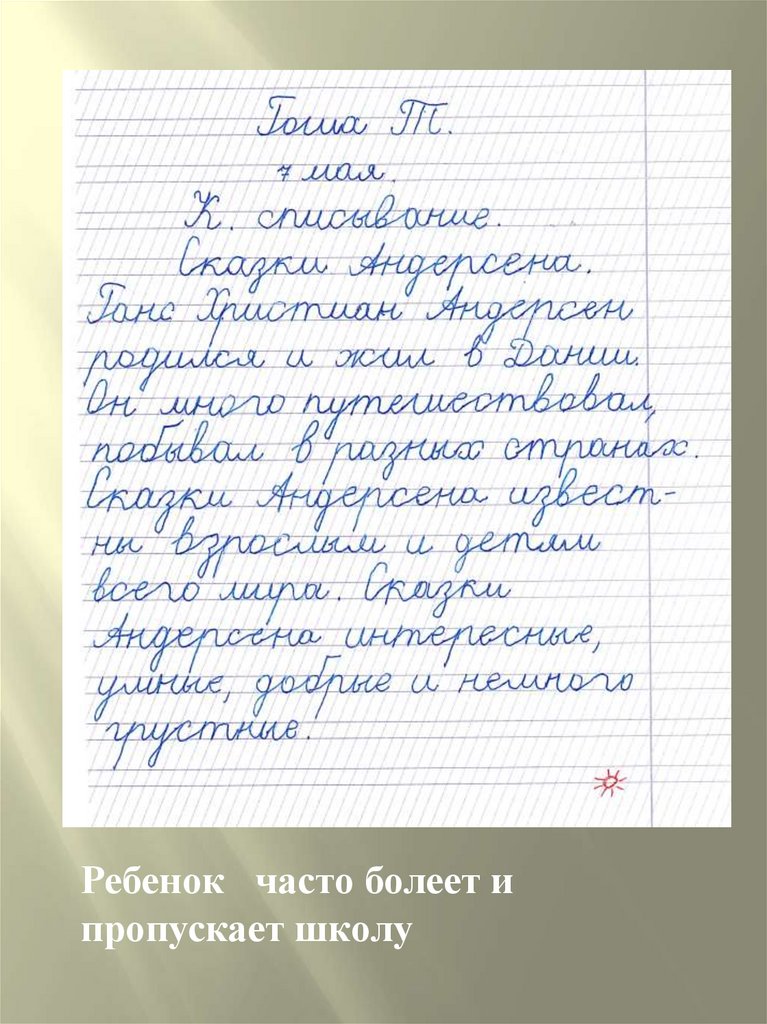 Гоша Т.
7 мая.
К. списывание.
Сказки Андерсена.
Ганс Христиан Андерсен
родился и жил в Дании.
Он много путешествовал,
побывал в разных странах.
Сказки Андерсена извест-
ны взрослым и детям
всего мира. Сказки
Андерсена интересные,
умные, добрые и немного
грустные.
Ребенок часто болеет и
пропускает школу